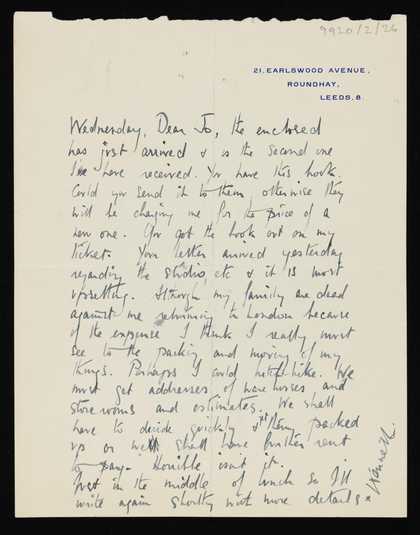 9920/2/26
21. EARLSWOOD AVENUE,
ROUNDHAY,
LEEDS. 8.
Wednesday, Dear Jo, the enclosed
has just arrived & is the second one
I've have received. You have this book.
Could you send it to them, otherwise they
will be charging me for the price of a
new one. You got the book out on my
ticket. Your letter arrived yesterday
regarding the studio, etc & it is most
upsetting. Although my family are dead
against me returning to London because
of the expense I think I really must
see to the packing and moving of my
things. Perhaps I could hitch-hike. We
must get addresses of warehouses and
store rooms and estimates. We shall
have to decide quickly & things packed
up or we'll shall have further rent
to pay. Horrible isn't it.
Just in the middle of lunch so I'll
write again shortly with more details.
Kenneth.